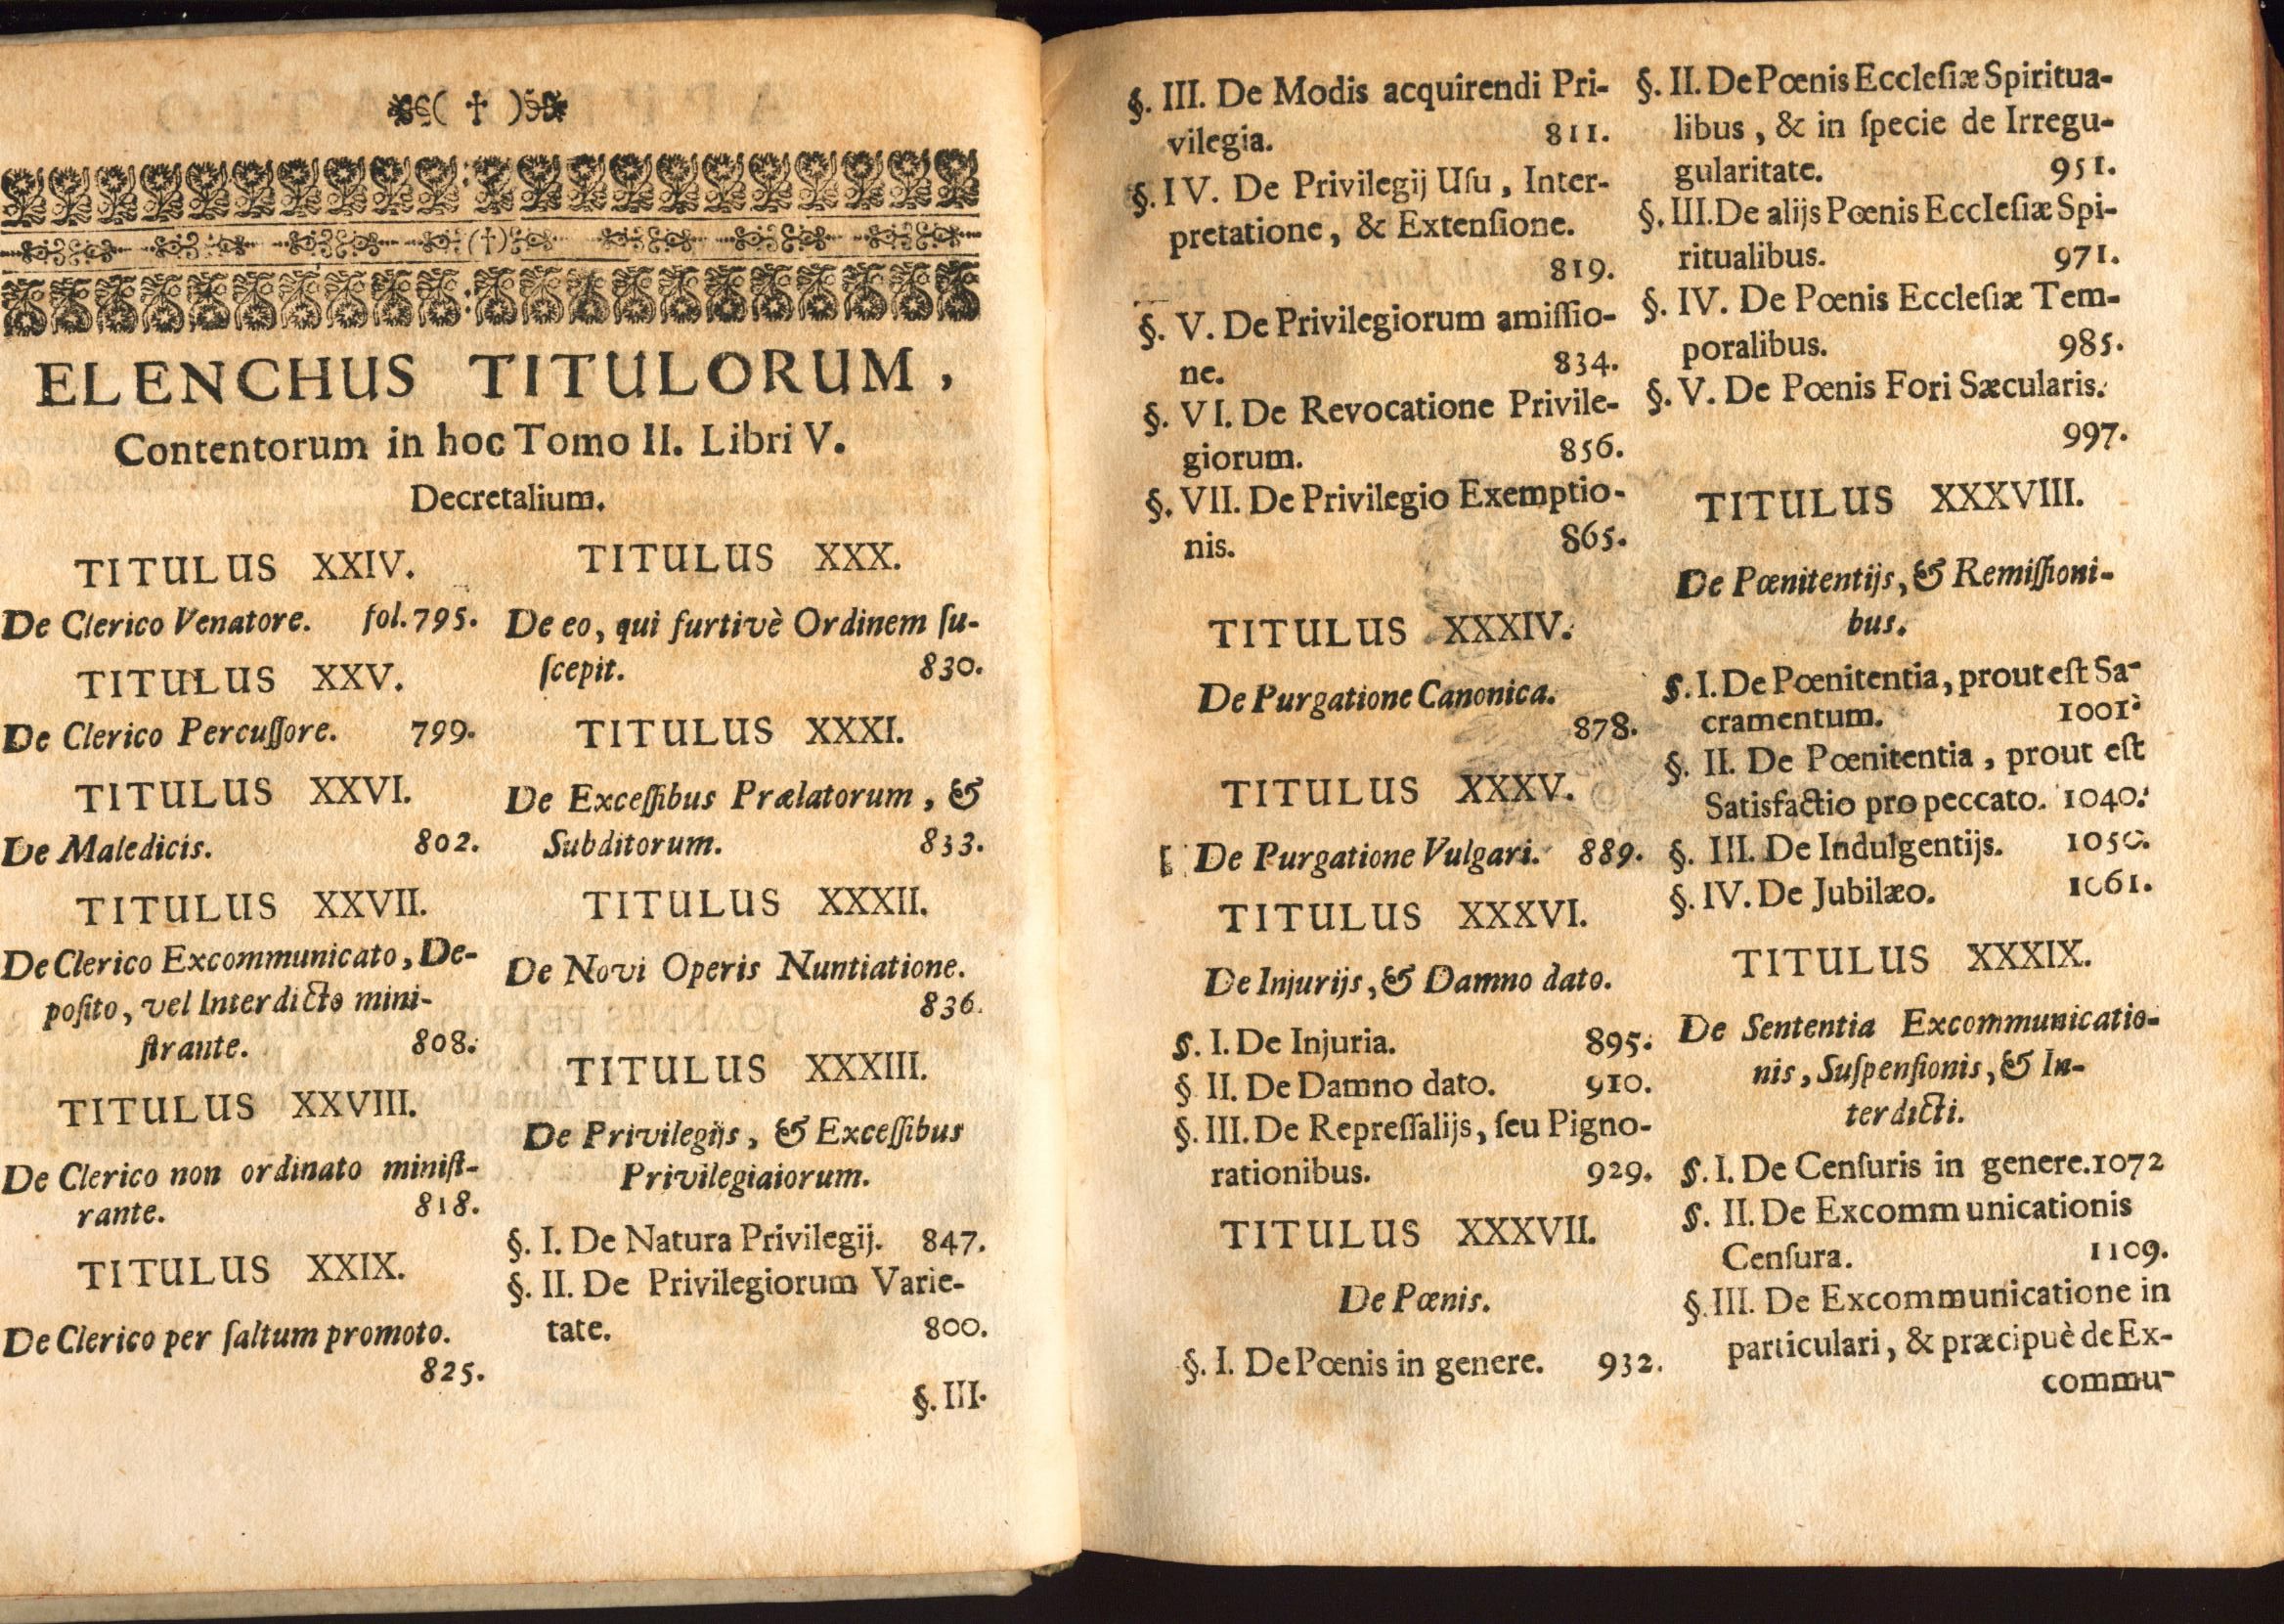 ( † )
(†)
ELENCHUS TITULORUM,
Contentorum in hoc Tomo II. Libri V.
Decretalium.
TITULUS XXIV.
De Clerico Venatore. fol. 795.
TITULUS XXV.
De Clerico Percuſſore. 799.
TITULUS XXVI.
De Maledicis. 802.
TITULUS XXVII.
De Clerico Excommunicato, De-
poſito, vel Interdicto mini-
ſtrante. 808.
TITULUS XXVIII.
De Clerico non ordinato miniſt-
rante. 818.
TITULUS XXIX.
De Clerico per ſaltum promoto.
825.
TITULUS XXX.
De eo, qui furtivè Ordinem ſu-
ſcepit. 830.
TITULUS XXXI.
De Exceſſibus Prælatorum, &
Subditorum. 833.
TITULUS XXXII.
De Novi Operis Nuntiatione.
836.
TITULUS XXXIII.
De Privilegijs, & Exceſſibus
Privilegiaiorum.
§. I. De Natura Privilegij. 847.
§. II. De Privilegiorum Varie-
tate. 800.
§. III.
§. III. De Modis acquirendi Pri-
vilegia. 811.
§. IV. De Privilegij Uſu, Inter-
pretatione, & Extenſione.
819.
§. V. De Privilegiorum amiſſio-
ne. 834.
§. VI. De Revocatione Privile-
giorum. 856.
§. VII. De Privilegio Exemptio-
nis. 865.
TITULUS XXXIV.
De Purgatione Canonica.
878.
TITULUS XXXV.
[ De Purgatione Vulgari. 889.
TITULUS XXXVI.
De Injurijs, & Damno dato.
§. I. De Injuria. 895.
§ II. De Damno dato. 910.
§. III. De Repreſſalijs, ſeu Pigno-
rationibus. 929.
TITULUS XXXVII.
De Pœnis.
§. I. De Pœnis in genere. 932.
§. II. De Pœnis Eccleſiæ Spiritua-
libus, & in ſpecie de Irregu-
gularitate. 951.
§. III. De alijs Pœnis Eccleſiæ Spi-
ritualibus. 971.
§. IV. De Pœnis Eccleſiæ Tem-
poralibus. 985.
§. V. De Pœnis Fori Sæcularis.
997.
TITULUS XXXVIII.
De Pœnitentijs, & Remiſſioni-
bus.
§. I. De Pœnitentia, prout eſt Sa-
cramentum. 1001
§. II. De Pœnitentia, prout eſt
Satisfactio pro peccato. 1040.
§. III. De Indulgentijs. 1050.
§. IV. De Jubilæo. 1061.
TITULUS XXXIX.
De Sententia Excommunicatio-
nis, Suſpenſionis, & In-
terdicti.
§. I. De Cenſuris in genere. 1072
§. II. De Excommunicationis
Cenſura. 1109.
§. III. De Excommunicatione in
particulari, & præcipuè de Ex-
commu-